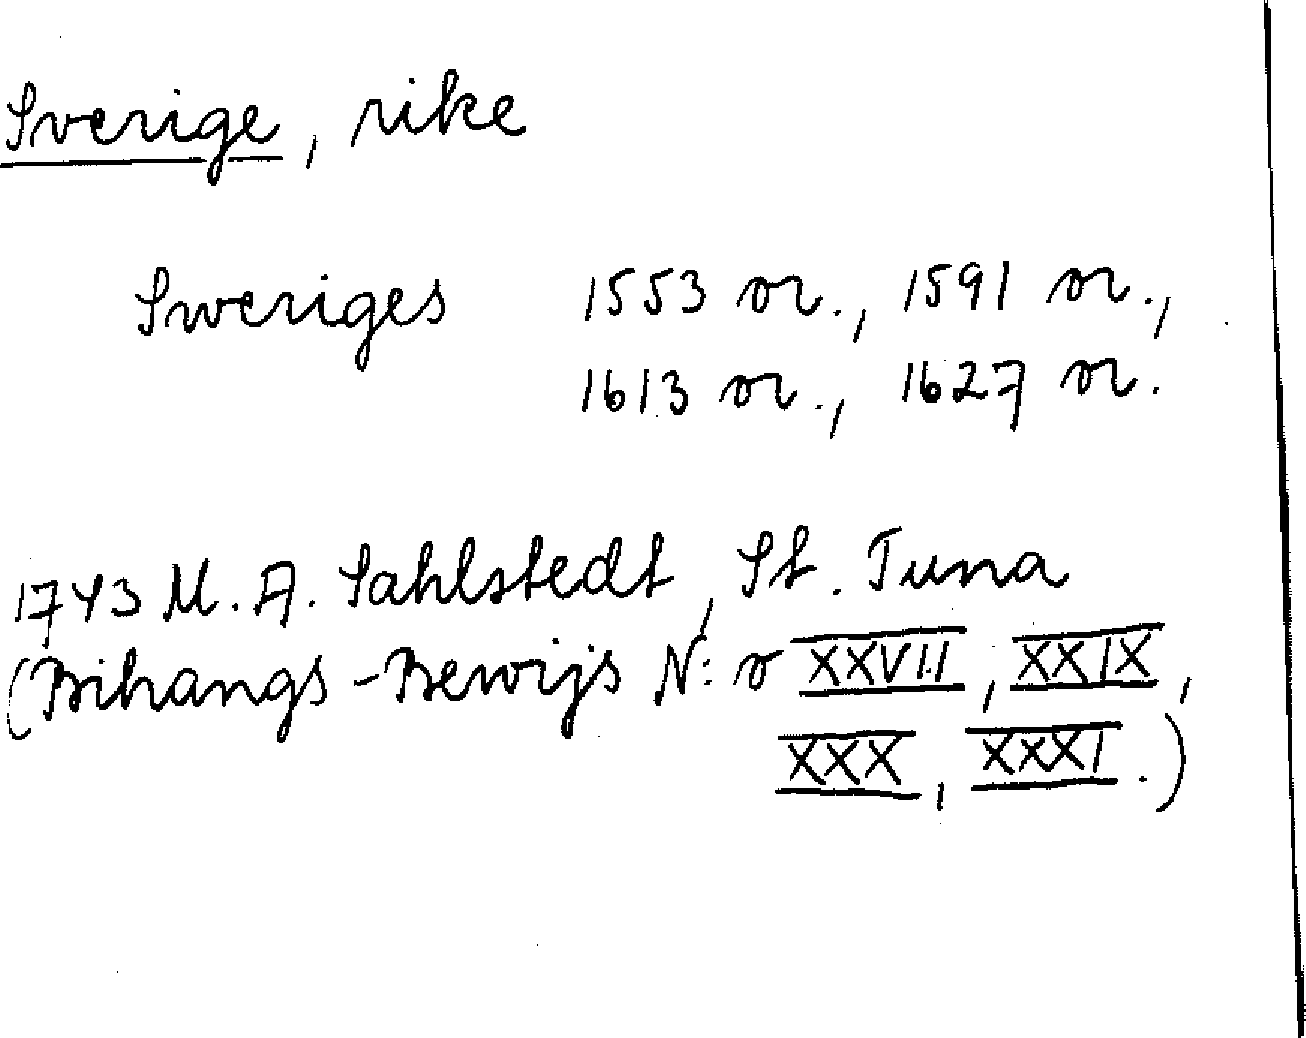 Sverige, rike
Sweriges 1553 or., 1591 or.,
1613 or., 1627 or.
1743 M. A. Sahlstedt, St. Tuna
(Bihangs-Bewijs N:o XXVIII, XXIX,
XXX, XXXI.)